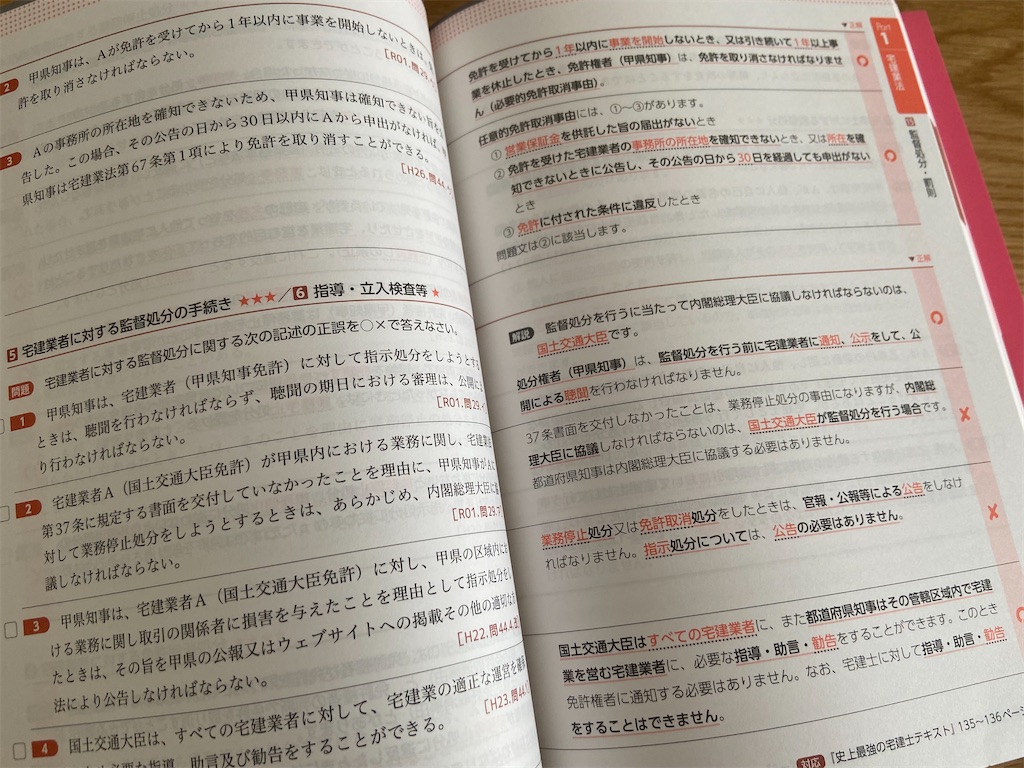 2 甲県知事は、Aが免許を受けてから1年以内に事業を開始しないときは、
許を取り消さなければならない。
[R01.問29.
3 Aの事務所の所在地を確知できないため、甲県知事は確知できない旨を
告した。この場合、その公告の日から30日以内にAから申出がなければ、
県知事は宅建業法第67条第1項により免許を取り消すことができる。
[H26.問44.
5 宅建業者に対する監督処分の手続き ★★★/6 指導・立入検査等 ★
問題 宅建業者に対する監督処分に関する次の記述の正誤を○×で答えなさい。
1 甲県知事は、宅建業者(甲県知事免許)に対して指示処分をしようとする
ときは、聴聞を行わなければならず、聴聞の期日における審理は、公開に
り行わなければならない。
[R01.問29.
2 宅建業者A(国土交通大臣免許)が甲県内における業務に関し、宅建業
第37条に規定する書面を交付していなかったことを理由に、甲県知事がAに
対して業務停止処分をしようとするときは、あらかじめ、内閣総理大臣に
議しなければならない。
[R01.問29.
3 甲県知事は、宅建業者A(国土交通大臣免許)に対し、甲県の区域内に
ける業務に関し取引の関係者に損害を与えたことを理由として指示処分を
たときは、その旨を甲県の公報又はウェブサイトへの掲載その他の適切な
法により公告しなければならない。
[H22.問44.
4 国土交通大臣は、すべての宅建業者に対して、宅建業の適正な運営を確
[H23.問44.
必要な指導、助言及び勧告をすることができる。
▼正解
免許を受けてから1年以内に事業を開始しないとき、又は引き続いて1年以上事
業を休止したとき、免許権者(甲県知事)は、免許を取り消さなければなりませ
ん(必要的免許取消事由)。
任意的免許取消事由には、①~③があります。
① 営業保証金を供託した旨の届出がないとき
② 免許を受けた宅建業者の事務所の所在地を確知できないとき、又は所在を確
知できないときに公告し、その公告の日から30日を経過しても申出がない
とき
③ 免許に付された条件に違反したとき
問題文は②に該当します。
▼正解
解説 監督処分を行うに当たって内閣総理大臣に協議しなければならないのは、
国土交通大臣です。
処分権者(甲県知事)は、監督処分を行う前に宅建業者に通知、公示をして、公
開による聴聞を行わなければなりません。
37条書面を交付しなかったことは、業務停止処分の事由になりますが、内閣総
理大臣に協議しなければならないのは、国土交通大臣が監督処分を行う場合です。
都道府県知事は内閣総理大臣に協議する必要はありません。
×
業務停止処分又は免許取消処分をしたときは、官報・公報等による公告をしなけ
ればなりません。指示処分については、公告の必要はありません。
×
国土交通大臣はすべての宅建業者に、また都道府県知事はその管轄区域内で宅建
業を営む宅建業者に、必要な指導・助言・勧告をすることができます。このとき
免許権者に通知する必要はありません。なお、宅建士に対して指導・助言・勧告
をすることはできません。
対応 『史上最強の宅建士テキスト』135~136ペー
Part
1
宅建業法
監督処分・罰則